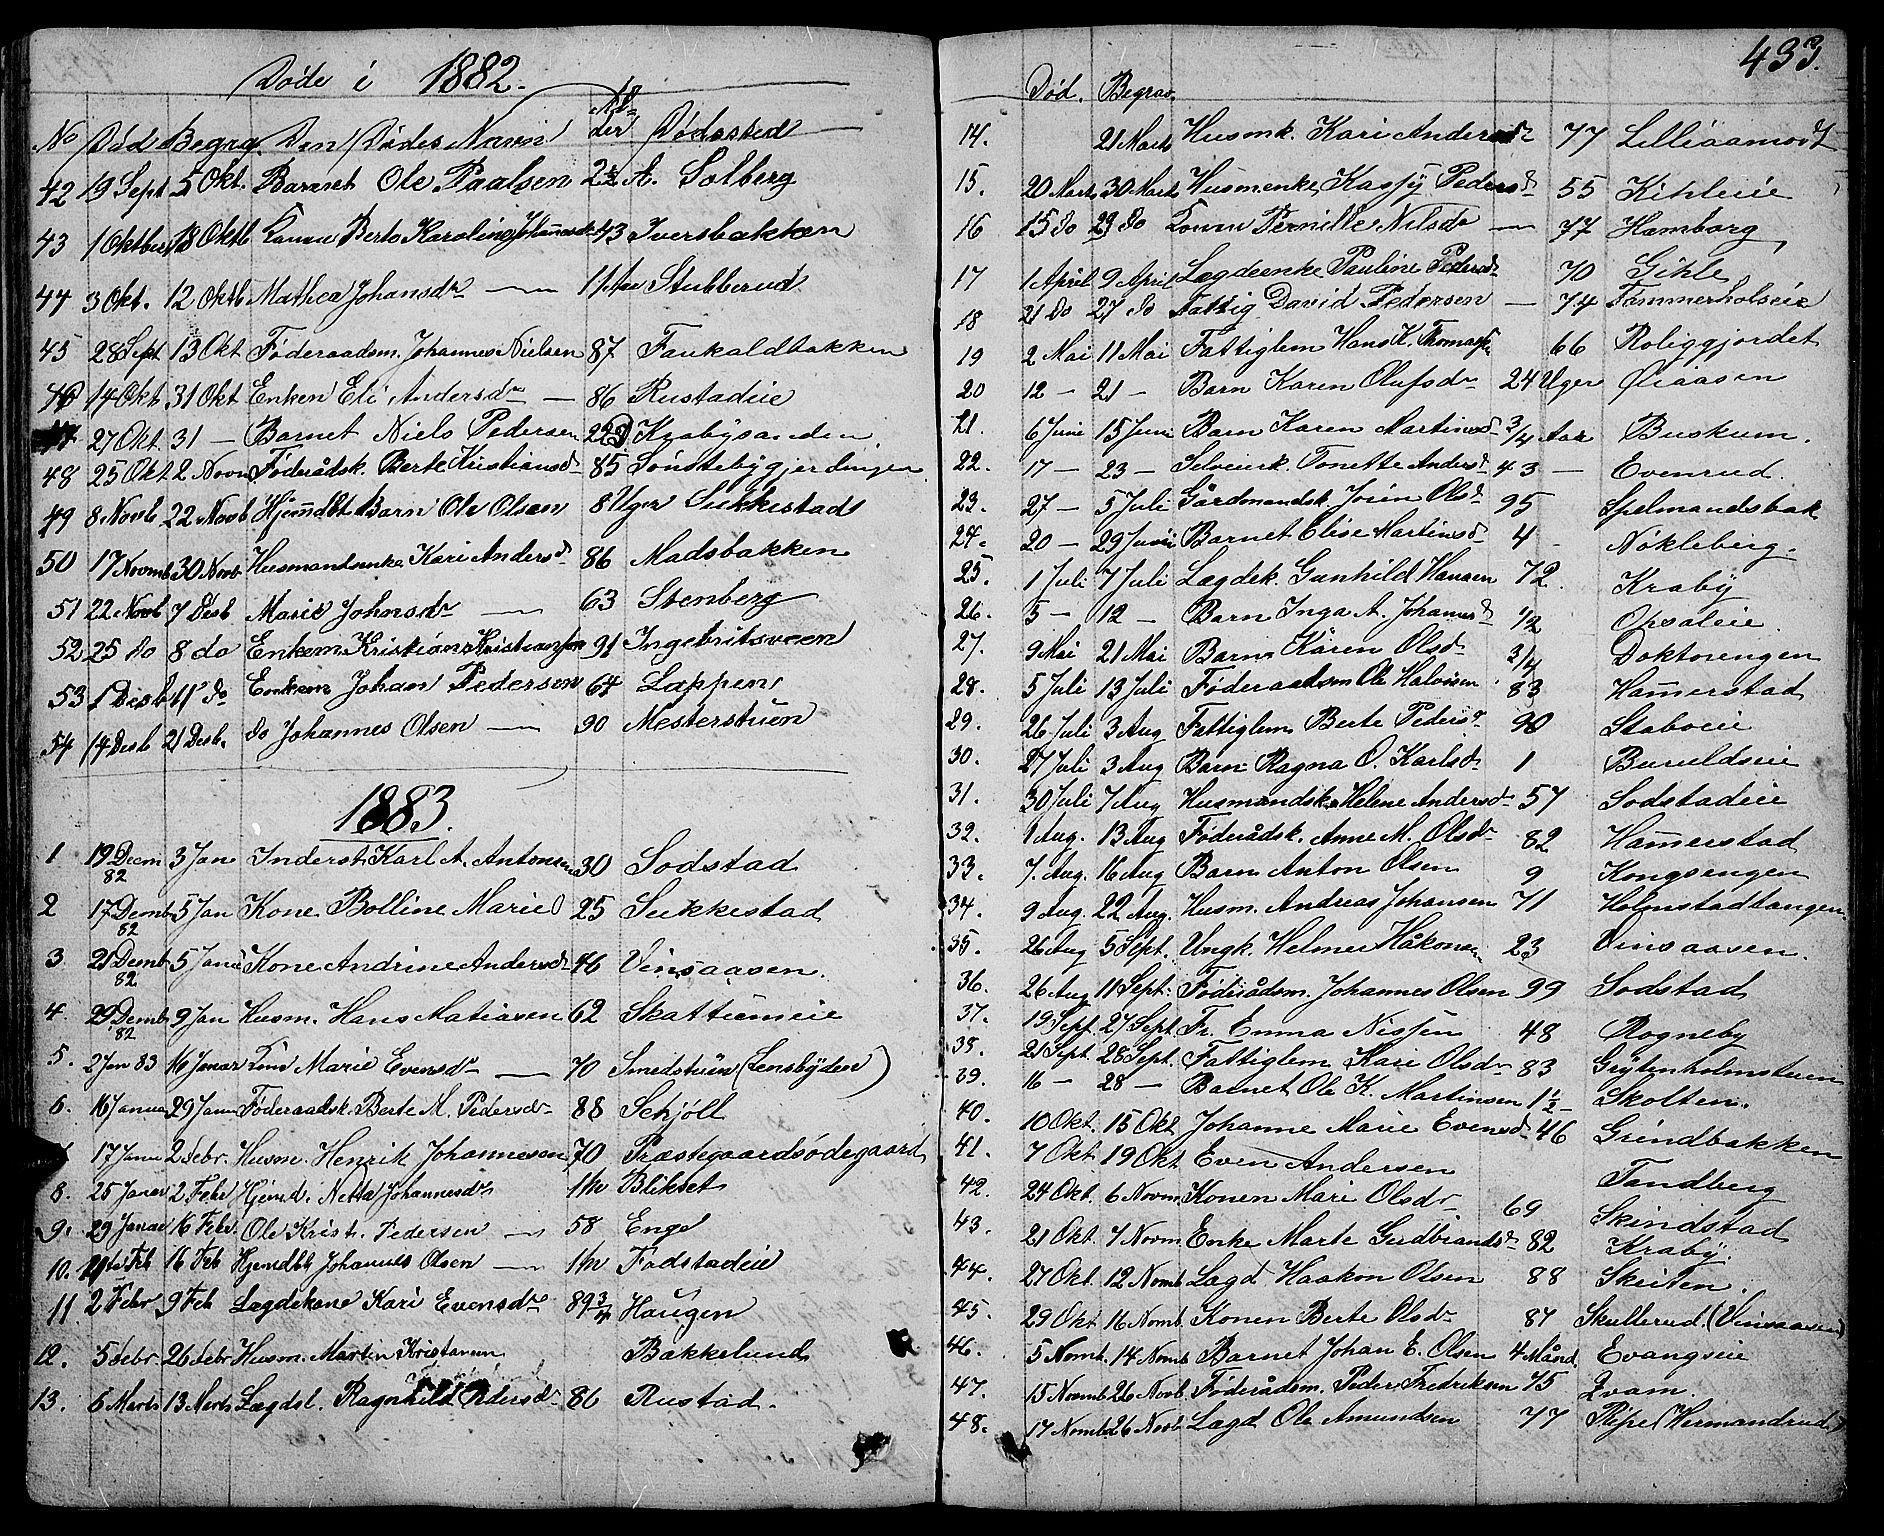 Døde i 1882.
No Død Begrg. Den Dødes Navn Al-der Dødssted
42 19 Sept 5 Okt. Barnet Ole Paalsen 2 1/2 A. Solberg
43 1 Oktber 18 Oktb Konen Berte Karoline Johannesdr 43 Iversbakken
44 3 Okt. 12 Oktb Mathea Johansdr — 11 Aar Stubberud
45 28 Sept 13 Okt Føderaadsm. Johannes Nielsen 87 Faukaldbakken
46 14 Okt 31 Okt Enken Eli Andersdr — 86 Rustadeie
47 27 Okt. 31 — Barnet Niels Pedersen Krabysanden
48 25 Okt 2 Novn Føderådsk. Berte Kristiansd 85 Sønstebygjerdingen
49 8 Novb 22 Novb Hjemdbt Barn Ole Olsen 8 Uger Sukkestads
50 17 Novmb 30 Novb Husmandsenke Kari Andersd 86 Madsbakken
51 22 Novb 7 Desb Marie Johnsdr — 63 Stenberg
52 25 do 8 do Enkem Kristian Kristiansen 91 Ingebritsveen
53 1 Desb 11 do Enkem Johan Pedersen 64 Lappen
54 14 Desb 21 Desb. do Johannes Olsen — 90 Mesterstuen
1883.
1 19 Decm 82 3 Jan Inderst. Karl A. Antonsen 30 Sodstad
2 17 Demb 82 5 Jan Kone Bolline Marie 25 Sukkestad
3 21 Demb 82 5 Jan Kone Andrine Andersdr 46 Vinsaasen.
4. 29 Demb 82 9 Jan Husm. Hans Matiasen 62 Skattumeie
5. 2 Jan 83 16 Janar Marie Evensdr — 70 Smedstuen (Lensbyden)
6. 16 Janua 29 Janu Føderaadsk. Berte M. Pedersdr 88 Schjøll
17 Janu 2 Febr. Husm. Henrik Johannesen 70 Præstegaardsødegaard
8. 25 Janar 2 Febr Hjemd. Netta Johannesdr 1 Blikset
9. 29 Januar 16 Febr. Ole Krist. Pedersen — 58 Enge
10. 16 Feb Hjemdbt Johannes Olsen — 1 Fodstadeie
11. 2 Febr 9 Feb Lægdekone Kari Evensdr 89 3/4 Haugen
12. 5 Febr 26 Febr Husm. Martin Kristansen Bakkelund
13. 6 Marts 13 Marts Lægdsl. Ragnhild Pedersdr 86 Rustad.
433.
Død. Begrav.
14. 21 Marts Husmk. Kari Andersdr 77 Lilliaamodt
15. 20 Marts 30 Marts Husmenke Kassy Pedersd 55 Kihleeie
16 15 do 29 do Konen Pernille Nilsdr — 77 Hamborg
17 1 April 9 April Lægdeenke Pauline Pedersdr 70 Gihle
18 21 do 27 do Fattig David Pedersen — 74 Tømmerholseie
19 2 Mai 11 Mai Fattiglem Hans K. 66 Roliggjordet
20 12 — 21 — Barn Karen Olufsdr 24 Uger Øliaasen
21. 6 Juni 15 Juni Barn Karen Martinsd 3/4 Aar Buskum.
22. 17 — 23 — Selveierk. Tonette Andersd 43 — Evenrud.
23. 27 — 5 Juli Gårdmandsk. Jørin Olsdr 95 Spelmandsbak
24. 20 — 29 Juni Barnet Elise Martinsd 4 - Nøkleberg.
25. 1 Juli 7 Juli Lægdek. Gunhild Hansen 72. Kraby
26. 5 — 12 — Barn Inga A. Johannesd 1/2 Opsaleie.
27. 9 Mai 21 Mai Barn Karen Olsdr 3/4 Doktorengen
28. 5 Juli 13 Juli Føderaadsm Ole Halvorsen 83 Hammerstad
29. 26 Juli 3 Aug Fattiglem Berte Pedersdr 90 Staboeie
30. 27 Juli 3 Aug Barn Ragna O. Karlsdr 1 Buruldseie
31. 30 Juli 7 Aug Husmandsk. Helene Andersdr 57 Sodstadeie
32. 1 Aug. 13 Aug Føderådsk. Anne M. Olsdr 82 Hammerstad
33. 7. Aug. 16 Aug Barn Anton Olsen 9 Kongsengen
34. 9 Aug. 22 Aug. Husm. Andreas Johansen 71 Holmstadtangen
35. 26 Aug 5 Sept. Ungk. Helmer Håkonsen 23 Vinsaasen.
36. 26 Aug 11 Sept. Føderådsm. Johannes Olsen 99 Sodstad
37. 19 Sept. 27 Sept Fr. Emma Nissen 48 Rogneby
38. 21 Sept. 28 Sept. Fattiglem Kari Olsdr 83 Grytenholmstuen
39. 16 — 28 — Barnet Ole K. Martinsen 1 1/2 — Skolten.
40. 10 Okt. 15 Okt Johanne Marie Evensdr 46 Grindbakken
41. 7 Okt. 19 Okt Even Andersen Tandberg
42. 24 Okt. 6 Novm. Konen Mari Olsdr 69 Skindstad
43. 21 Okt. 7 Novm Enke Marte Gudbrandsdr 82 Kraby.
44. 27 Okt. 12 Nomb. Lægd Haakon Olsen 88 Skeiten.
45. 29 Okt 16 Nomb. Konen Berte Olsdr 87 Skullerud. (Vinsaasen)
46. 5 Nomb. 14 Nomb Barnet Johan E. Olsen 4 Månd. Evangseie
47. 15 Novmb 26 Novb Føderådsm. Peder Fredriksen 75 Qvam.
48. 17 Nomb 26 Novb Lægd Ole Amundsen 77 Pipe (Hermandrud)